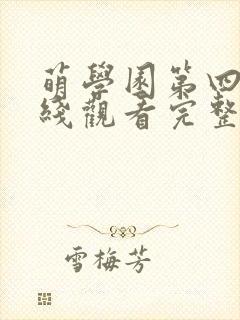 萌學園第四
綫觀看完整
雪梅芳